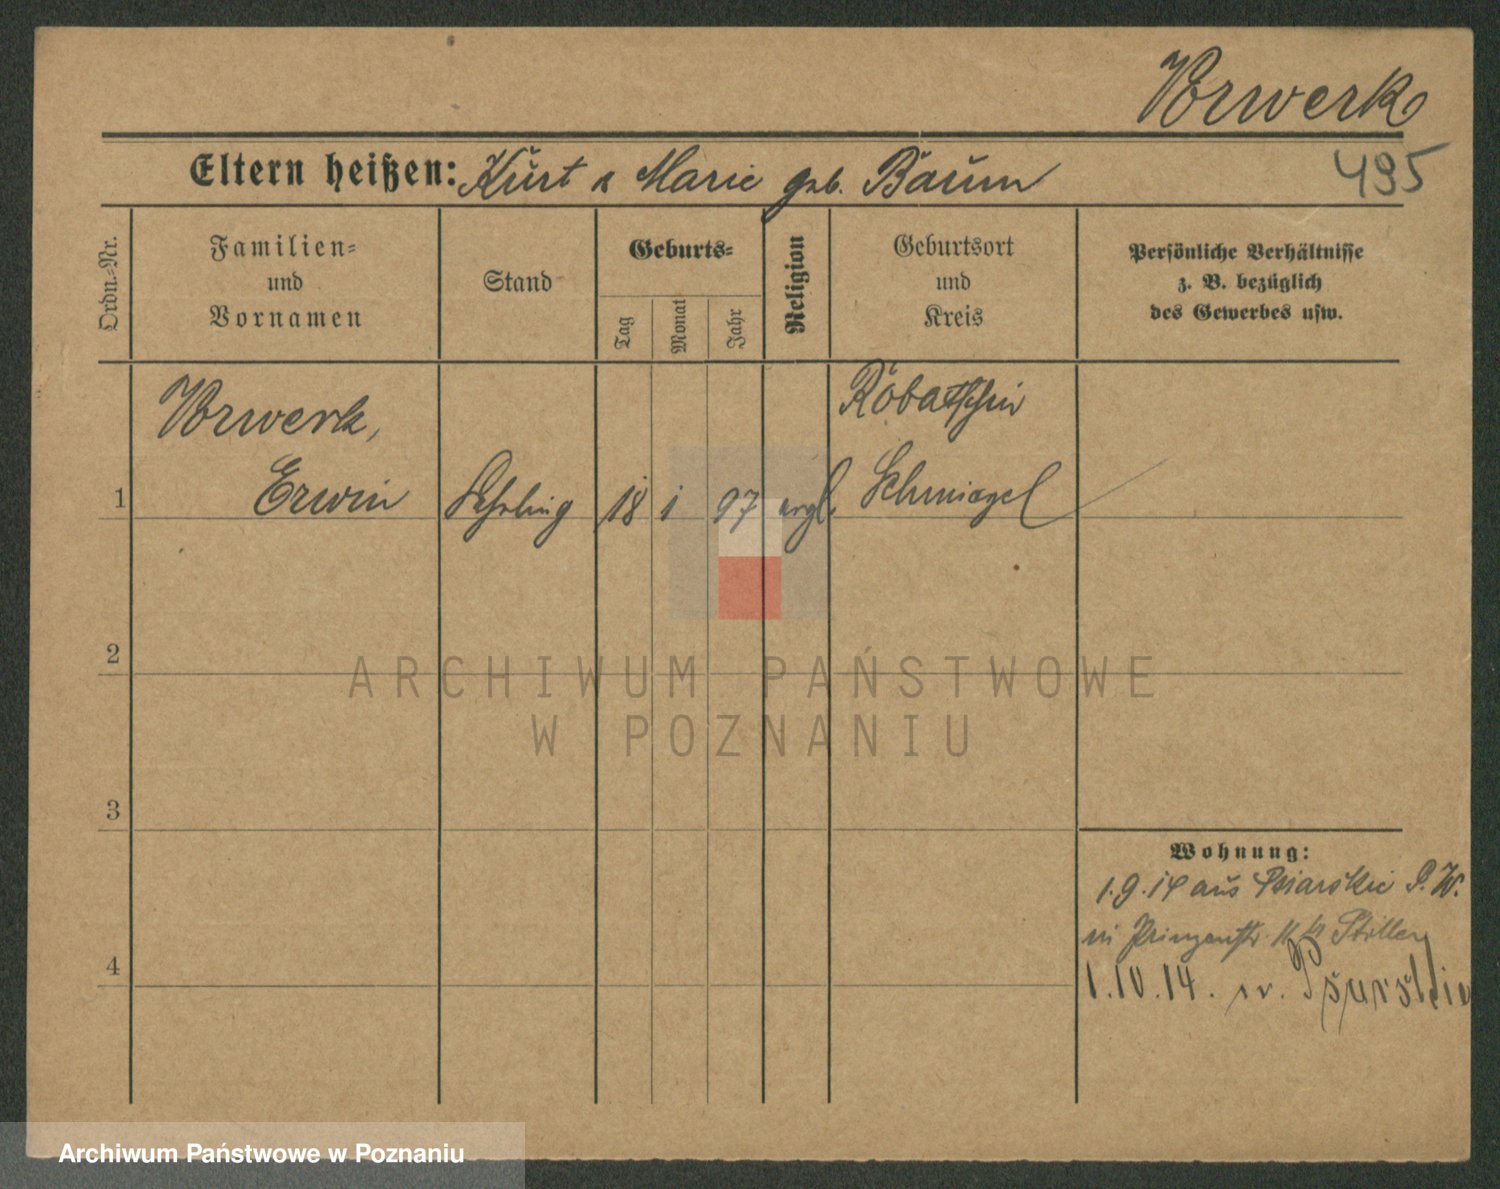 Vorwerk
495
Eltern heißen: Kurt & Marie geb. Baum
Ordn.=Nr.
Familien=
und
Vornamen
Stand
Geburts=
Tag
Monat
Jahr
Religion
Geburtsort
und
Kreis
Persönliche Verhältnisse
z. B. bezüglich
des Gewerbes usw.
1
Vorwerk,
Erwin
Lehrling
18
1
97
evgl.
Robatschin
Schmiegel
2
3
4
Wohnung:
1.9.14 aus Psiarskie P. W.
in Prinzenstr. b/
1.10.14. n.
ARCHIWUM PAŃSTWOWE
W POZNANIU
Archiwum Państwowe w Poznaniu